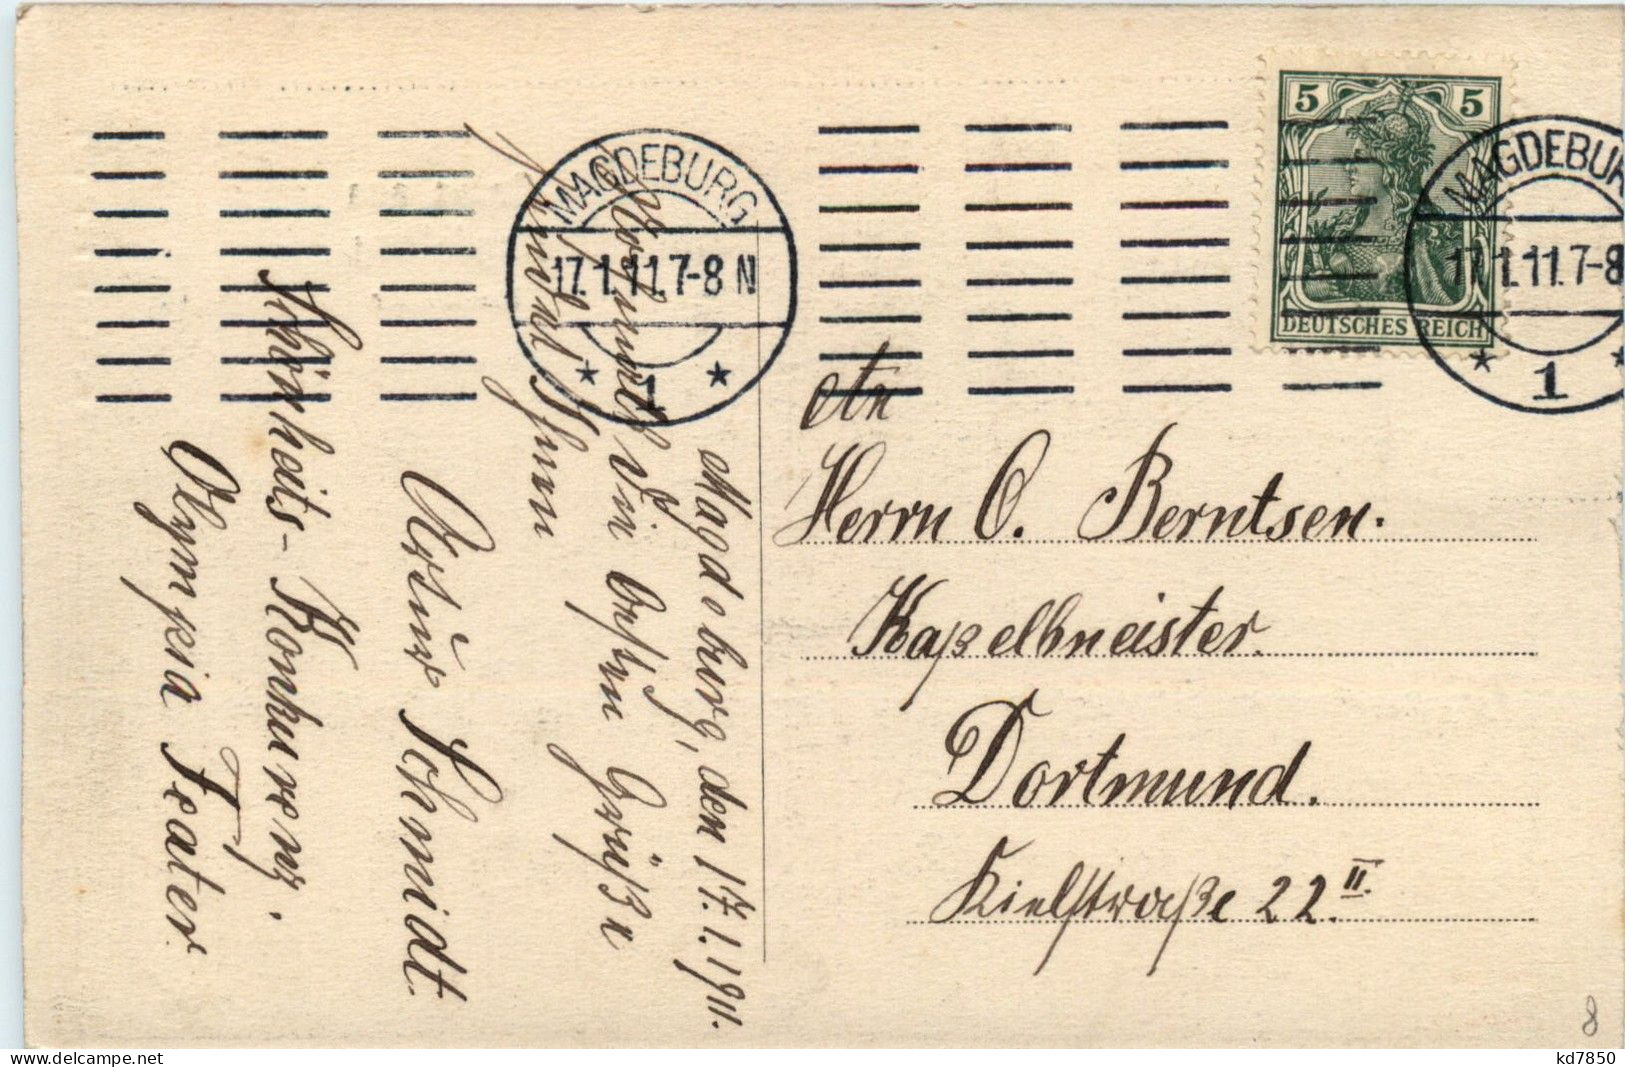 5 5
DEUTSCHES REICH
MAGDEBURG
17.1.11.7-8 N
* 1 *
MAGDEBUR
17.1.11.7-8
* 1 *
An
Herrn O. Berntsen.
Kapellmeister.
Dortmund.
Kielstraße 22.II.
Magdeburg, den 17.1.1911.
die besten Grüße
Ihnen
Schmidt.
Schönheits-Konkurenz.
Olympia Teater
8
kd7850
delcampe.net